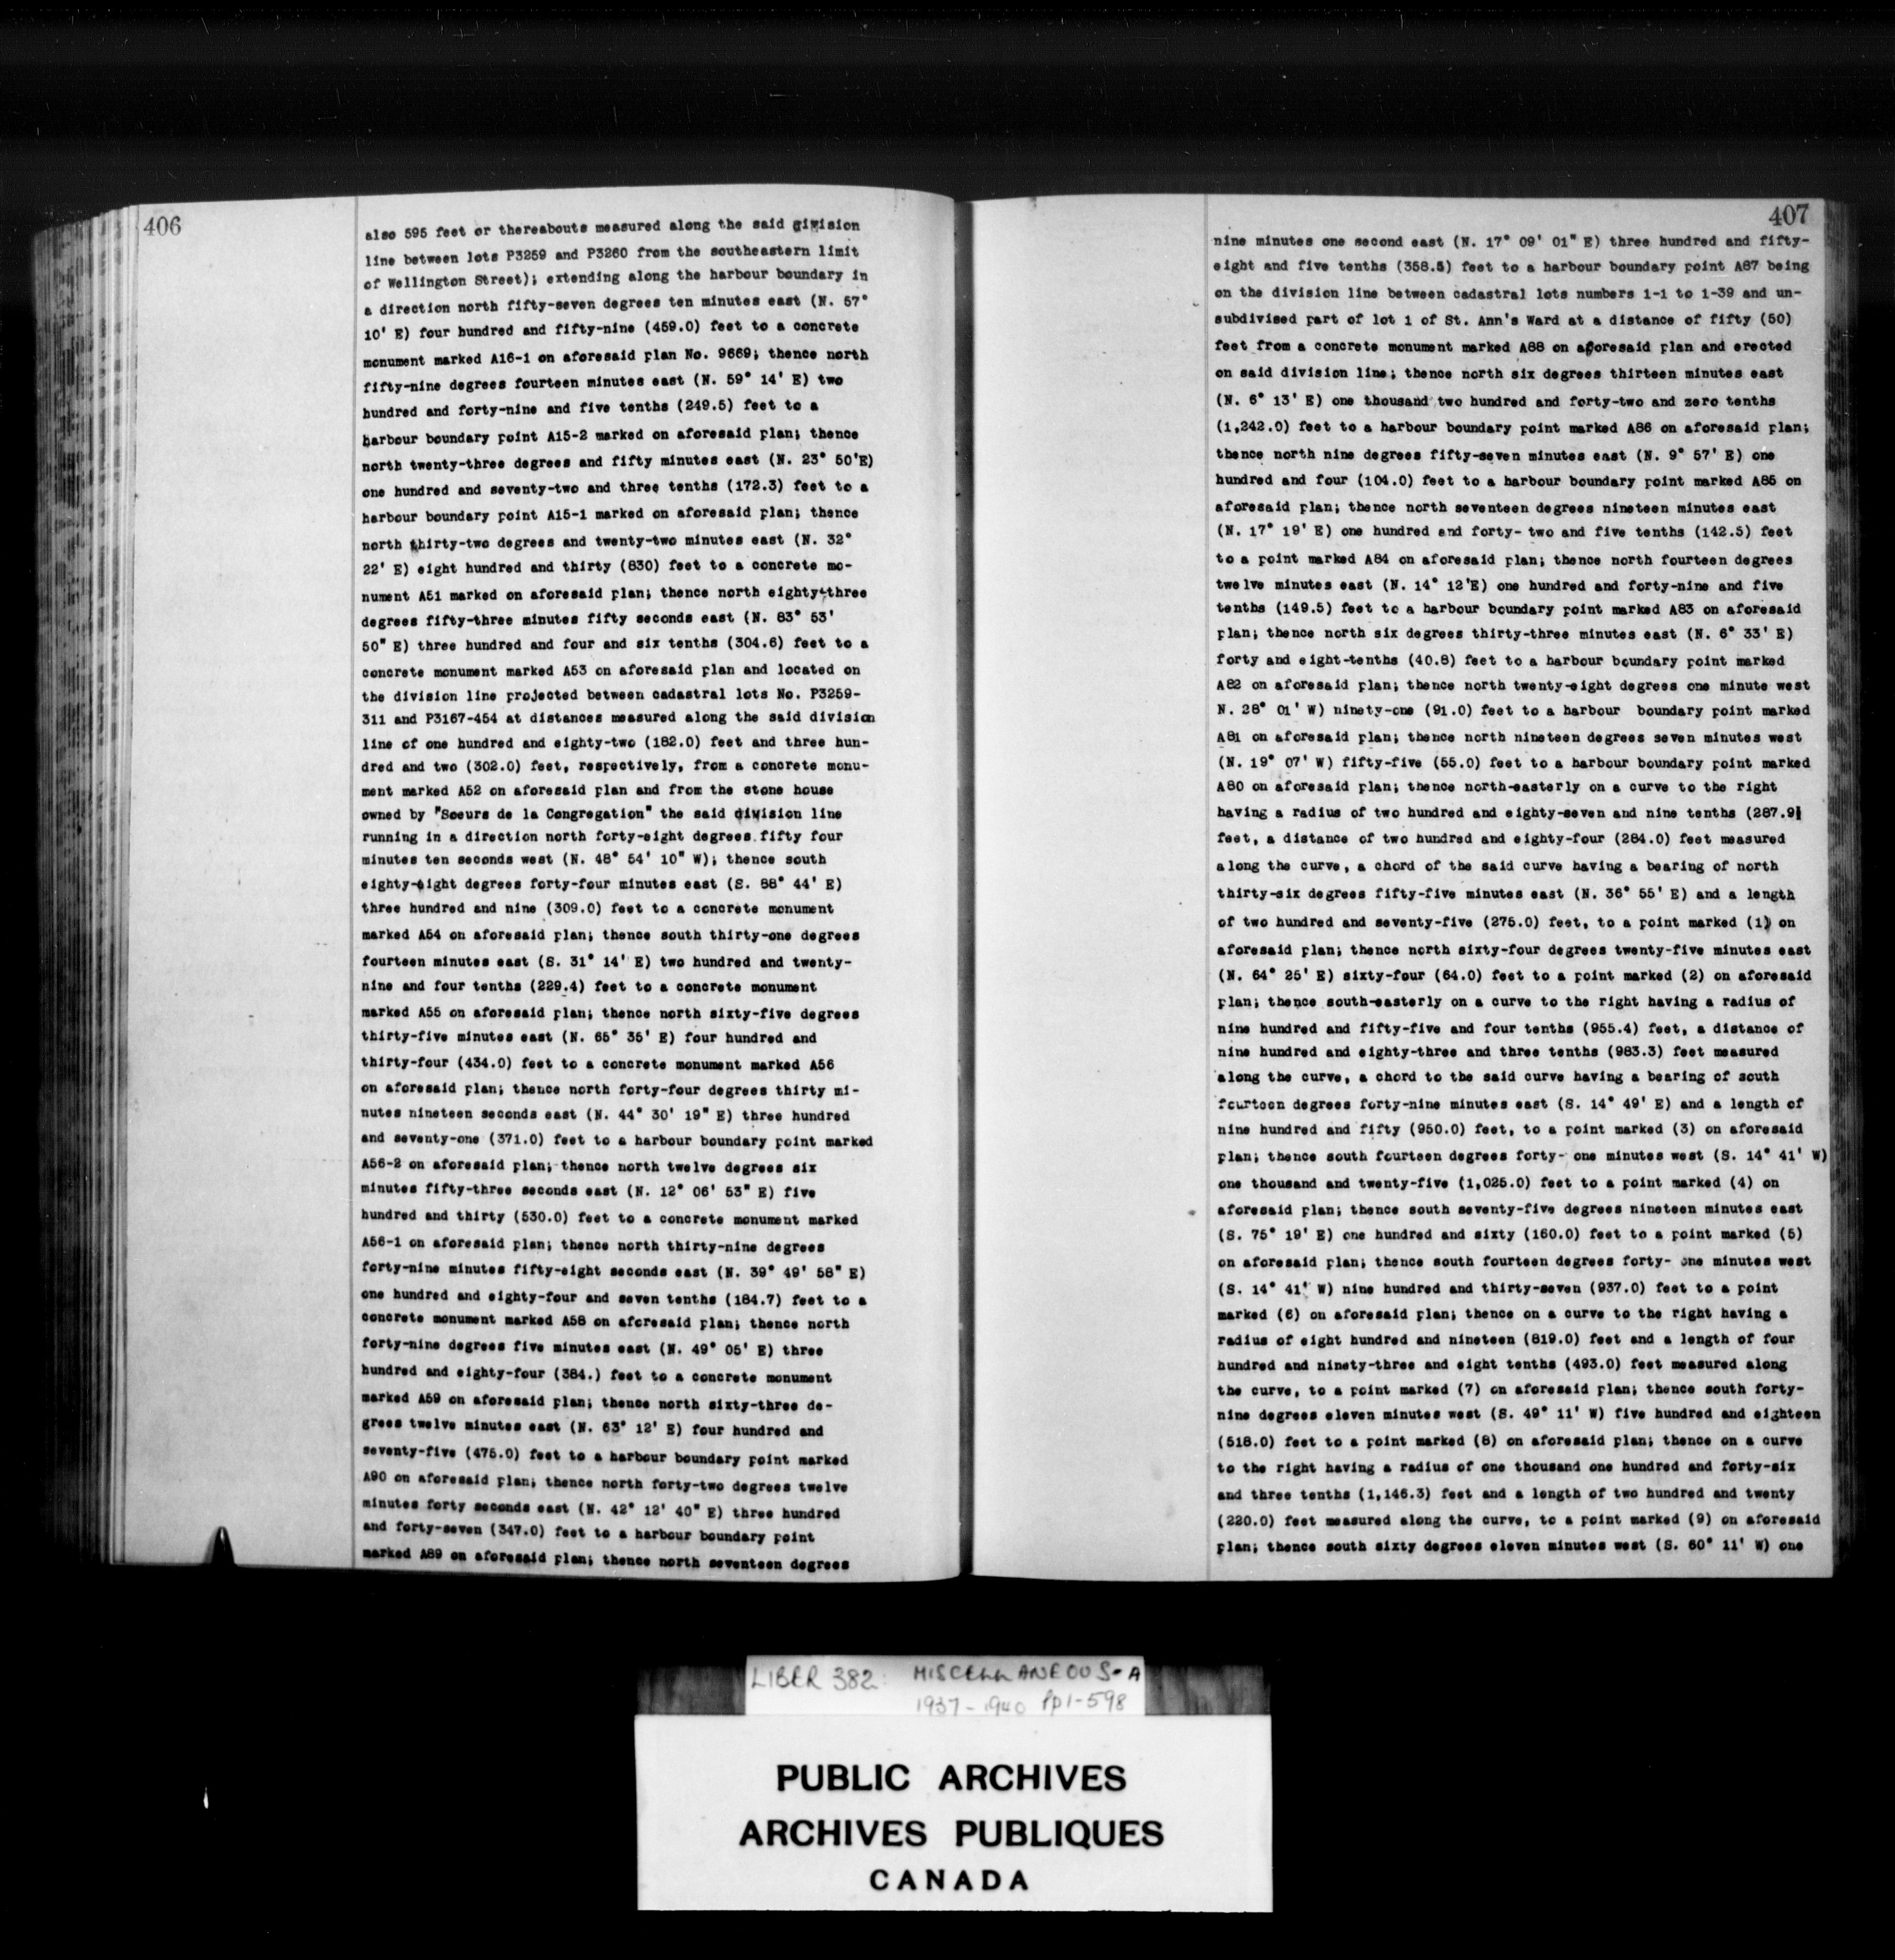 406
also 595 feet or thereabouts measured along the said division
line between lots P3259 and P3260 from the southeastern limit
of Wellington Street); extending along the harbour boundary in
a direction north fifty-seven degrees ten minutes east (N. 57°
10' E) four hundred and fifty-nine (459.0) feet to a concrete
monument marked A16-1 on aforesaid plan No. 9669; thence north
fifty-nine degrees fourteen minutes east (N. 59° 14' E) two
hundred and forty-nine and five tenths (249.5) feet to a
harbour boundary point A15-2 marked on aforesaid plan; thence
north twenty-three degrees and fifty minutes east (N. 23° 50'E)
one hundred and seventy-two and three tenths (172.3) feet to a
harbour boundary point A15-1 marked on aforesaid plan; thence
north thirty-two degrees and twenty-two minutes east (N. 32°
22' E) eight hundred and thirty (830) feet to a concrete mo-
nument A51 marked on aforesaid plan; thence north eighty-three
degrees fifty-three minutes fifty seconds east (N. 83° 53'
50" E) three hundred and four and six tenths (304.6) feet to a
concrete monument marked A53 on aforesaid plan and located on
the division line projected between cadastral lots No. P3259-
311 and P3167-454 at distances measured along the said division
line of one hundred and eighty-two (182.0) feet and three hun-
dred and two (302.0) feet, respectively, from a concrete monu-
ment marked A52 on aforesaid plan and from the stone house
owned by "Soeurs de la Congregation" the said division line
running in a direction north forty-eight degrees fifty four
minutes ten seconds west (N. 48° 54' 10" W); thence south
eighty-eight degrees forty-four minutes east (S. 88° 44' E)
three hundred and nine (309.0) feet to a concrete monument
marked A54 on aforesaid plan; thence south thirty-one degrees
fourteen minutes east (S. 31° 14' E) two hundred and twenty-
nine and four tenths (229.4) feet to a concrete monument
marked A55 on aforesaid plan; thence north sixty-five degrees
thirty-five minutes east (N. 65° 35' E) four hundred and
thirty-four (434.0) feet to a concrete monument marked A56
on aforesaid plan; thence north forty-four degrees thirty mi-
nutes nineteen seconds east (N. 44° 30' 19" E) three hundred
and seventy-one (371.0) feet to a harbour boundary point marked
A56-2 on aforesaid plan; thence north twelve degrees six
minutes fifty-three seconds east (N. 12° 06' 53" E) five
hundred and thirty (530.0) feet to a concrete monument marked
A56-1 on aforesaid plan; thence north thirty-nine degrees
forty-nine minutes fifty-eight seconds east (N. 39° 49' 58" E)
one hundred and eighty-four and seven tenths (184.7) feet to a
concrete monument marked A58 on aforesaid plan; thence north
forty-nine degrees five minutes east (N. 49° 05' E) three
hundred and eighty-four (384.) feet to a concrete monument
marked A59 on aforesaid plan; thence north sixty-three de-
grees twelve minutes east (N. 63° 12' E) four hundred and
seventy-five (475.0) feet to a harbour boundary point marked
A90 on aforesaid plan; thence north forty-two degrees twelve
minutes forty seconds east (N. 42° 12' 40" E) three hundred
and forty-seven (347.0) feet to a harbour boundary point
marked A89 on aforesaid plan; thence north seventeen degrees
407
nine minutes one second east (N. 17° 09' 01" E) three hundred and fifty-
eight and five tenths (358.5) feet to a harbour boundary point A87 being
on the division line between cadastral lots numbers 1-1 to 1-39 and un-
subdivised part of lot 1 of St. Ann's Ward at a distance of fifty (50)
feet from a concrete monument marked A88 on aforesaid plan and erected
on said division line; thence north six degrees thirteen minutes east
(N. 6° 13' E) one thousand two hundred and forty-two and zero tenths
(1,242.0) feet to a harbour boundary point marked A86 on aforesaid plan;
thence north nine degrees fifty-seven minutes east (N. 9° 57' E) one
hundred and four (104.0) feet to a harbour boundary point marked A85 on
aforesaid plan; thence north seventeen degrees nineteen minutes east
(N. 17° 19' E) one hundred and forty- two and five tenths (142.5) feet
to a point marked A84 on aforesaid plan; thence north fourteen degrees
twelve minutes east (N. 14° 12'E) one hundred and forty-nine and five
tenths (149.5) feet to a harbour boundary point marked A83 on aforesaid
plan; thence north six degrees thirty-three minutes east (N. 6° 33' E)
forty and eight-tenths (40.8) feet to a harbour boundary point marked
A82 on aforesaid plan; thence north twenty-eight degrees one minute west
N. 28° 01' W) ninety-one (91.0) feet to a harbour boundary point marked
A81 on aforesaid plan; thence north nineteen degrees seven minutes west
(N. 19° 07' W) fifty-five (55.0) feet to a harbour boundary point marked
A80 on aforesaid plan; thence north-easterly on a curve to the right
having a radius of two hundred and eighty-seven and nine tenths (287.9)
feet, a distance of two hundred and eighty-four (284.0) feet measured
along the curve, a chord of the said curve having a bearing of north
thirty-six degrees fifty-five minutes east (N. 36° 55' E) and a length
of two hundred and seventy-five (275.0) feet, to a point marked (1) on
aforesaid plan; thence north sixty-four degrees twenty-five minutes east
(N. 64° 25' E) sixty-four (64.0) feet to a point marked (2) on aforesaid
plan; thence south-easterly on a curve to the right having a radius of
nine hundred and fifty-five and four tenths (955.4) feet, a distance of
nine hundred and eighty-three and three tenths (983.3) feet measured
along the curve, a chord to the said curve having a bearing of south
fourteen degrees forty-nine minutes east (S. 14° 49' E) and a length of
nine hundred and fifty (950.0) feet, to a point marked (3) on aforesaid
plan; thence south fourteen degrees forty- one minutes west (S. 14° 41' W)
one thousand and twenty-five (1,025.0) feet to a point marked (4) on
aforesaid plan; thence south seventy-five degrees nineteen minutes east
(S. 75° 19' E) one hundred and sixty (160.0) feet to a point marked (5)
on aforesaid plan; thence south fourteen degrees forty- one minutes west
(S. 14° 41' W) nine hundred and thirty-seven (937.0) feet to a point
marked (6) on aforesaid plan; thence on a curve to the right having a
radius of eight hundred and nineteen (819.0) feet and a length of four
hundred and ninety-three and eight tenths (493.0) feet measured along
the curve, to a point marked (7) on aforesaid plan; thence south forty-
nine degrees eleven minutes west (S. 49° 11' W) five hundred and eighteen
(518.0) feet to a point marked (8) on aforesaid plan; thence on a curve
to the right having a radius of one thousand one hundred and forty-six
and three tenths (1,146.3) feet and a length of two hundred and twenty
(220.0) feet measured along the curve, to a point marked (9) on aforesaid
plan; thence south sixty degrees eleven minutes west (S. 60° 11' W) one
LIBER 382: MISCELLANEOUS-A
1937-1940 pp1-598
PUBLIC ARCHIVES
ARCHIVES PUBLIQUES
CANADA